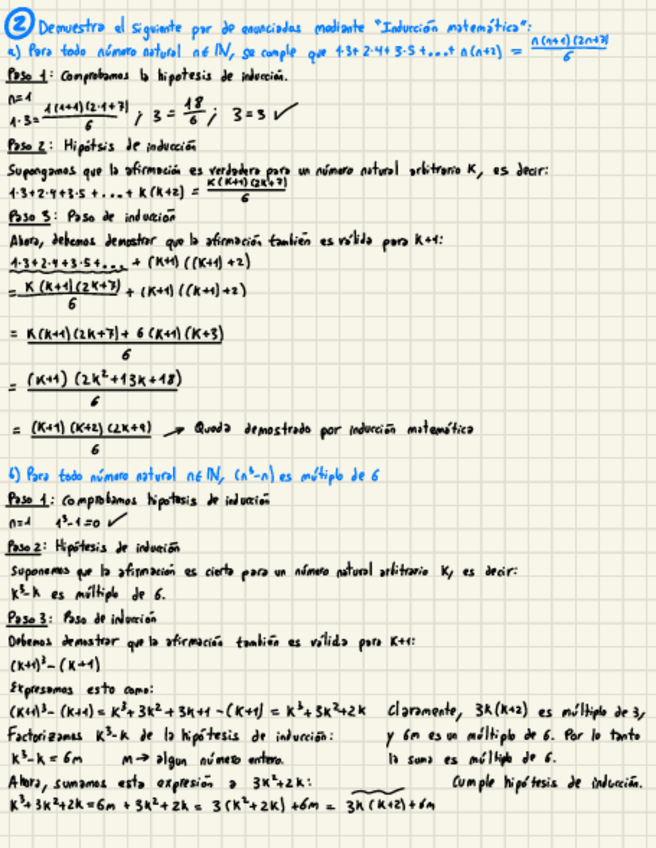 ② Demuestra el siguiente par de enunciados mediante "Inducción matemática":
a) Para todo número natural n∈ℕ, se cumple que 1·3+2·4+3·5+...+n(n+2) = n(n+1)(2n+7)/6
Paso 1: Comprobamos la hipotesis de inducción.
n=1
1·3 = 1(1+1)(2·1+7)/6 ; 3 = 18/6 ; 3=3 ✓
Paso 2: Hipótsis de inducción
Supongamos que la afirmación es verdadera para un número natural arbitrario K, es decir:
1·3+2·4+3·5+...+K(K+2) = K(K+1)(2K+7)/6
Paso 3: Paso de inducción
Ahora, debemos demostrar que la afirmación también es válida para K+1:
1·3+2·4+3·5+... + (K+1)((K+1)+2)
= K(K+1)(2K+7)/6 + (K+1)((K+1)+2)
= K(K+1)(2K+7)+6(K+1)(K+3)/6
= (K+1)(2K²+13K+18)/6
= (K+1)(K+2)(2K+9)/6 → Queda demostrado por inducción matemática
b) Para todo número natural n∈ℕ, (n³-n) es mútiplo de 6
Paso 1: Comprobamos hipotesis de inducción
n=1 1³-1=0 ✓
Paso 2: Hipótesis de inducción
Suponemos que la afirmación es cierta para un número natural arbitrario K, es decir:
K³-K es múltiplo de 6.
Paso 3: Paso de inducción
Debemos demostrar que la afirmación también es válida para K+1:
(K+1)³-(K+1)
Expresamos esto como:
(K+1)³-(K+1) = K³+3K²+3K+1-(K+1) = K³+3K²+2K
Factorizamos K³-K de la hipótesis de inducción:
K³-K = 6m m→ algun número entero.
Ahora, sumamos esta expresión a 3K²+2K:
K³+3K²+2K = 6m+3K²+2K = 3(K²+2K)+6m = 3K(K+2)+6m
Claramente, 3K(K+2) es múltiplo de 3,
y 6m es un múltiplo de 6. Por lo tanto
la suma es múltiplo de 6.
Cumple hipótesis de inducción.